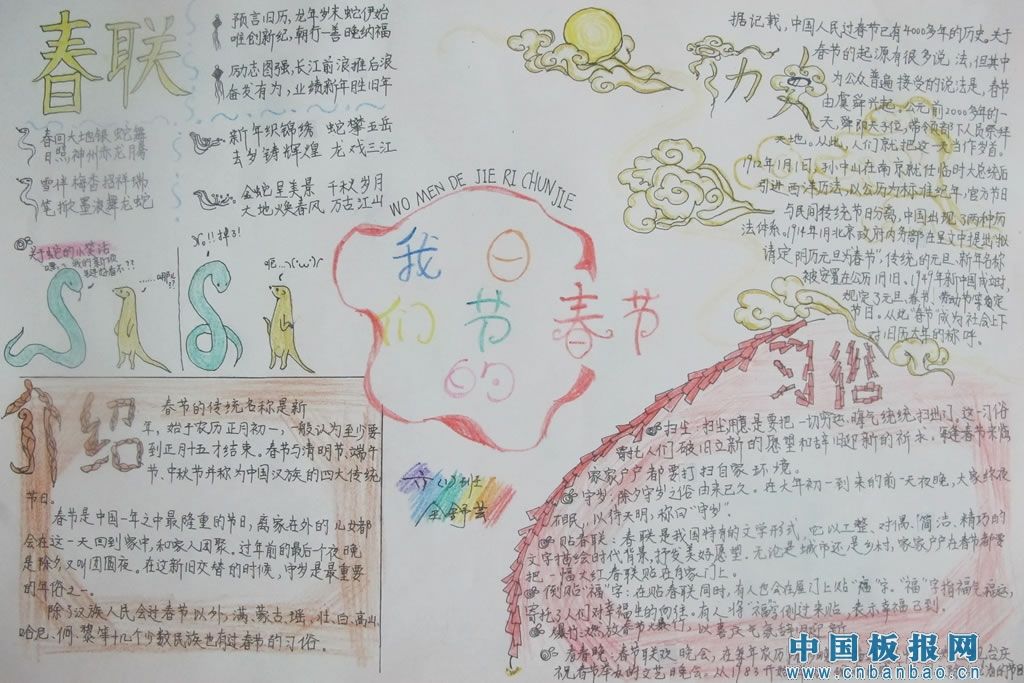 春联
预言旧历,龙年岁末蛇伊始
唯创新纪,朝行一善晚纳福
励志图强,长江前浪推后浪
奋发有为,业绩新年胜旧年
春回大地银蛇舞
日照神州赤龙腾
新年织锦绣 蛇攀五岳
去岁铸辉煌 龙戏三江
雪伴梅香招祥瑞
笔撒墨浪舞龙蛇
金蛇呈美景 千秋岁月
大地唤春风 万古江山
关于蛇的小笑话
嘿,我的新领
是好看不??
No!!掉了!
WO MEN DE JIE RI CHUN JIE
我们的节日
春节
六(1)班
王舒芸
介绍
春节的传统名称是新
年,始于农历正月初一,一般认为至少要
到正月十五才结束。春节与清明节、端午
节、中秋节并称为中国汉族的四大传统
节日。
春节是中国一年之中最隆重的节日,离家在外的儿女都
会在这一天回到家中,和家人团聚。过年前的最后个夜晚
是除夕又叫团圆夜。在这新旧交替的时候,守岁是最重要
的年俗之一。
除了汉族人民会过春节以外,满、蒙古、瑶、壮、白、高山、
哈尼、侗、黎等十几个少数民族也有过春节的习俗。
据记载,中国人民过春节已有4000多年的历史。关于
春节的起源有很多说法,但其中
为公众普遍接受的说法是,春节
由虞舜兴起。公元前2000多年的一
天,舜即天子位,带领部下人员祭拜
天地。从此,人们就把这一天当作岁首。
1912年1月1日,孙中山在南京就任临时大总统后
引进西洋历法,以公历为标准纪年,官方节日
与民间传统节日分离,中国出现了两种历
法体系。1914年1月北京政府内务部在呈文中提出:"拟
请定阴历元旦为春节",传统的元旦、新年名称
被安置在公历1月1日。1949年新中国成立时,
规定了元旦、春节、劳动节等节定
节日。从此"春节"成为社会上下
对旧历大年的称呼。
习俗
扫尘:扫尘用意是要把一切穷运、晦气统统扫出门。这一习俗
寄托人们破旧立新的愿望和辞旧迎新的祈求。每逢春节来临
家家户户都要打扫自家环境。
守岁:除夕守岁之俗由来已久。在大年初一到来的前一天夜晚,大家终夜
不眠,以待天明,称曰"守岁"。
贴春联:春联是我国特有的文学形式,它以工整、对偶、简洁、精巧的
文字描绘时代背景,抒发美好愿望。无论是城市还是乡村,家家户户在春节都要
把一幅大红春联贴在自家门上。
倒贴"福"字:在贴春联同时,有人也会在屋门上贴"福"字。"福"字指福气福运,
寄托了人们对幸福生的向往。有人将"福"字倒过来贴,表示幸福已到。
爆竹:燃放春节爆竹,以喜庆气氛辞旧迎新
看春晚:春节联欢晚会,在每年农历
祝春节举办的文艺晚会。从1983开始
中国板报网
www.cnbanbao.cn